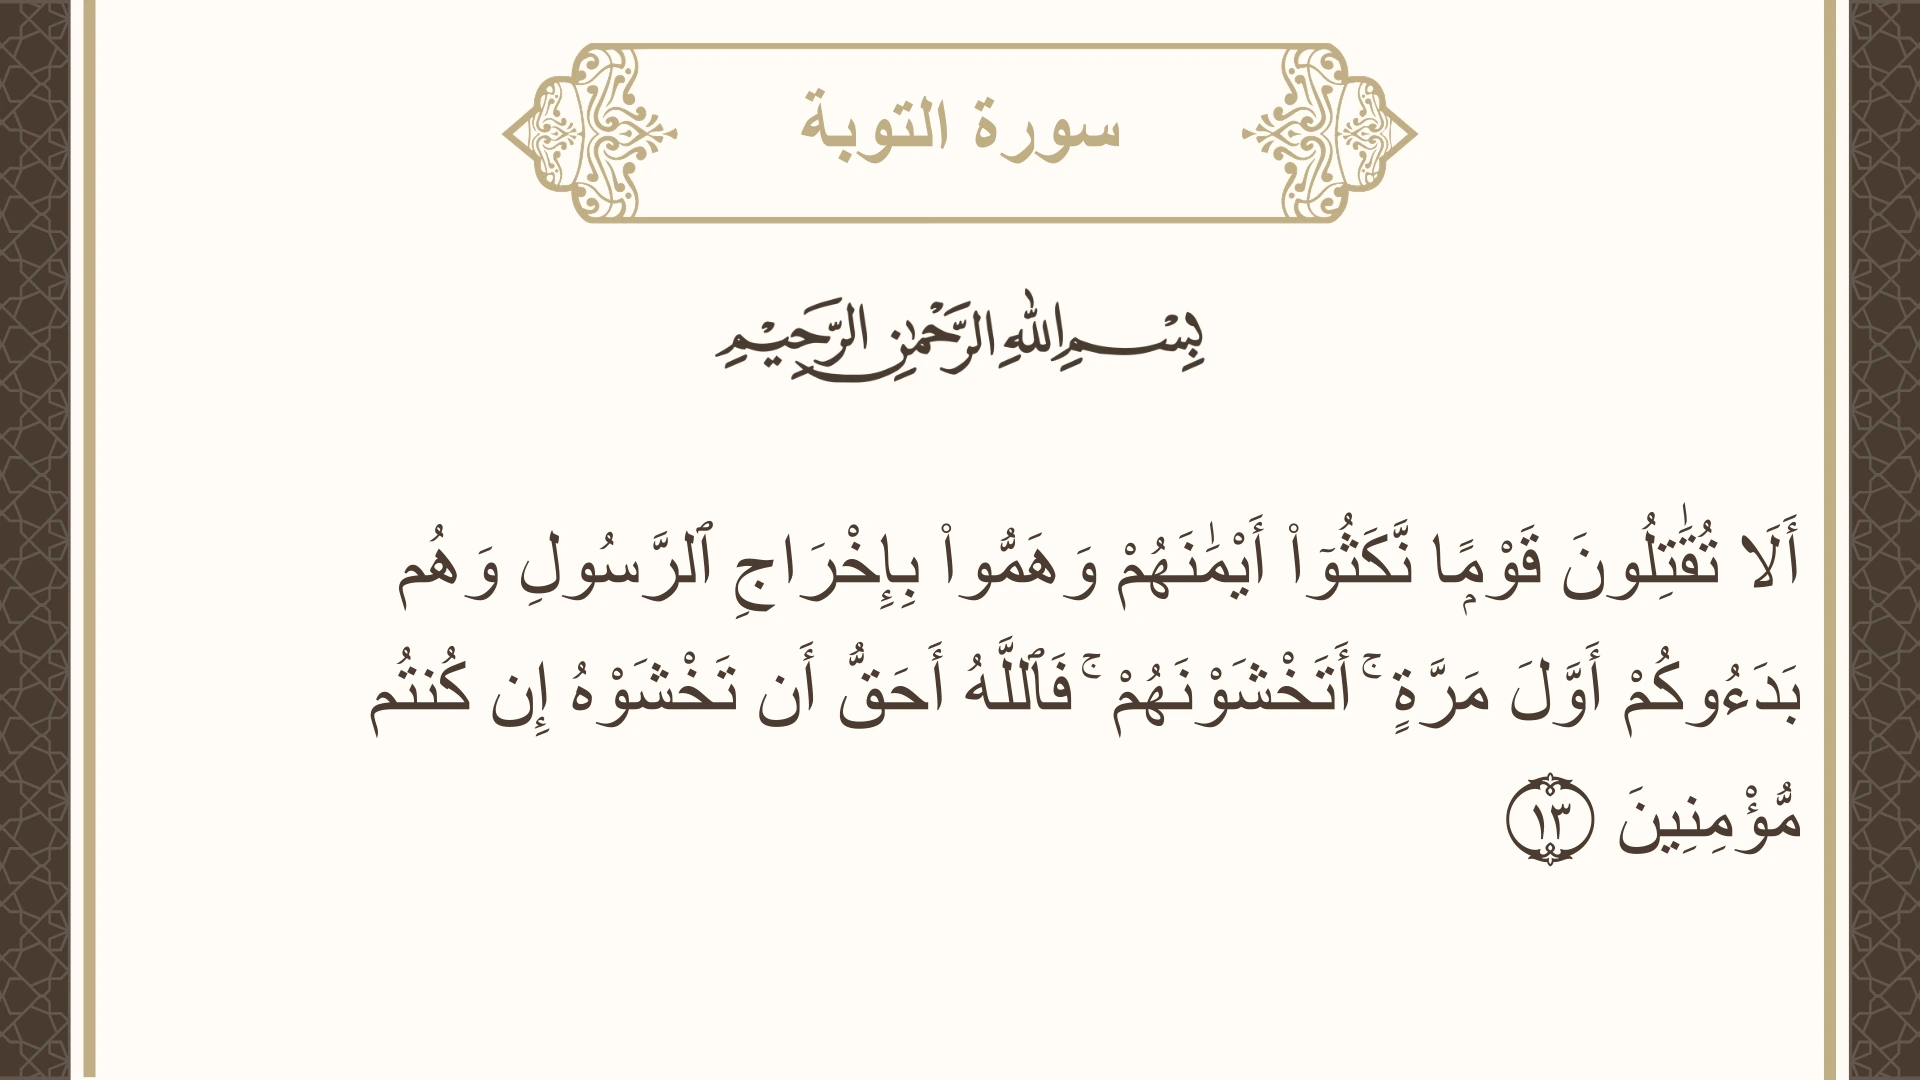 سورة التوبة
بِسْمِ اللهِ الرَّحْمٰنِ الرَّحِيْمِ
أَلَا تُقَٰتِلُونَ قَوْمًۭا نَّكَثُوٓا۟ أَيْمَٰنَهُمْ وَهَمُّوا۟ بِإِخْرَاجِ ٱلرَّسُولِ وَهُم
بَدَءُوكُمْ أَوَّلَ مَرَّةٍ ۚ أَتَخْشَوْنَهُمْ ۚ فَٱللَّهُ أَحَقُّ أَن تَخْشَوْهُ إِن كُنتُم
مُّؤْمِنِينَ ١٣